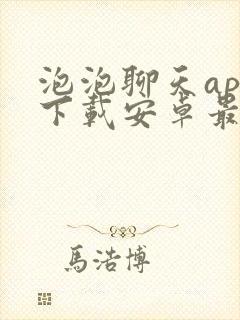 泡泡聊天ap
下載安卓最
馬浩博